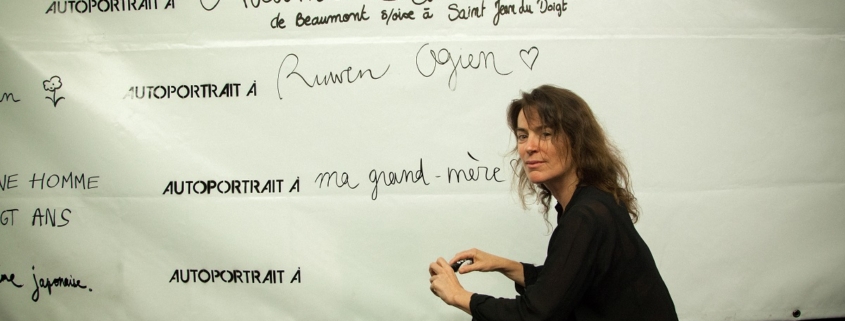 AUTOPORTRAIT À
de Beaumont s/oise à Saint Jean du Doigt
AUTOPORTRAIT À Ruwen Ogien
NE HOMME
GT ANS
AUTOPORTRAIT À ma grand-mère
japonaise.
AUTOPORTRAIT À